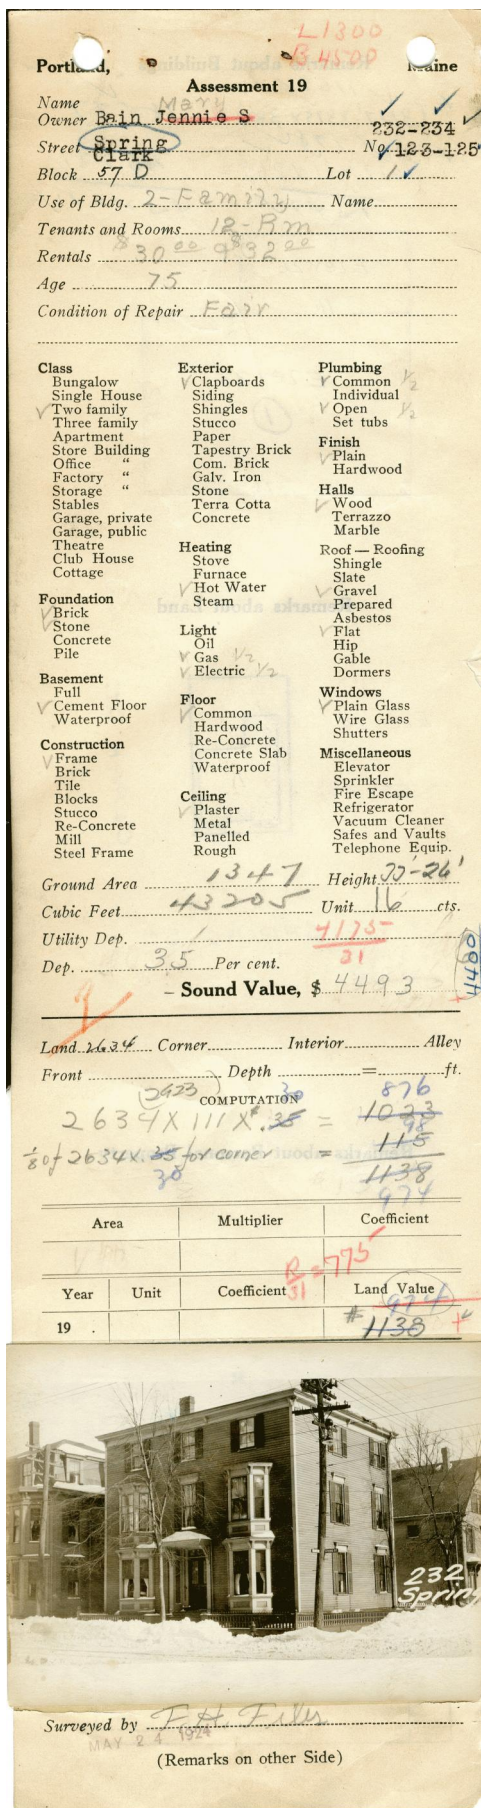 L1300
B4500
Portland, Maine
Assessment 19
Name Mary
Owner Bain Jennie S
232-234
Street Spring No. 123-125
Clark
Block 57 D Lot 1
Use of Bldg. 2-Family Name
Tenants and Rooms 12-Rm
Rentals $30 00 & $32 00
Age 75
Condition of Repair Fair
Class
Bungalow
Single House
√ Two family
Three family
Apartment
Store Building
Office "
Factory "
Storage "
Stables
Garage, private
Garage, public
Theatre
Club House
Cottage
Foundation
√ Brick
√ Stone
Concrete
Pile
Basement
Full
√ Cement Floor
Waterproof
Construction
√ Frame
Brick
Tile
Blocks
Stucco
Re-Concrete
Mill
Steel Frame
Exterior
√ Clapboards
Siding
Shingles
Stucco
Paper
Tapestry Brick
Com. Brick
Galv. Iron
Stone
Terra Cotta
Concrete
Heating
Stove
Furnace
√ Hot Water
Steam
Light
Oil
√ Gas 1/2
√ Electric 1/2
Floor
√ Common
Hardwood
Re-Concrete
Concrete Slab
Waterproof
Ceiling
√ Plaster
Metal
Panelled
Rough
Plumbing
√ Common 1/2
Individual
√ Open 1/2
Set tubs
Finish
√ Plain
Hardwood
Halls
√ Wood
Terrazzo
Marble
Roof — Roofing
Shingle
Slate
√ Gravel
Prepared
Asbestos
√ Flat
Hip
Gable
Dormers
Windows
√ Plain Glass
Wire Glass
Shutters
Miscellaneous
Elevator
Sprinkler
Fire Escape
Refrigerator
Vacuum Cleaner
Safes and Vaults
Telephone Equip.
Ground Area 1347 Height 26'
Cubic Feet 43205 Unit 16 cts.
Utility Dep.
4175
31
Dep. 35 Per cent.
Sound Value, $ 4493
4400
Land 2634 Corner Interior Alley
Front Depth = ft.
2623
COMPUTATION
30 876
2634 X 111 X .35 = 1023
98
1/8 of 2634 x 35 for corner = 115
30
1138
974
Area Multiplier Coefficient
R = 775
31
Year Unit Coefficient Land Value
974
19 # 1138
232
Spring
Surveyed by F. H. Files
MAY 24 1924
(Remarks on other Side)